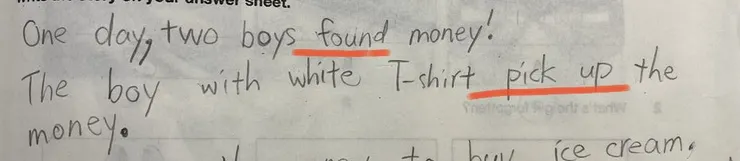 One day, two boys found money!
The boy with white T-shirt pick up the
money.
to buy ice cream.